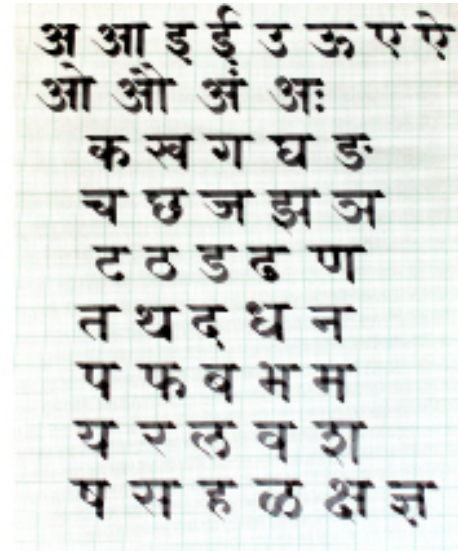 अ आ इ ई उ ऊ ए ऐ
ओ औ अं अः
क ख ग घ ङ
च छ ज झ ञ
ट ठ ड ढ ण
त थ द ध न
प फ ब भ म
य र ल व श
ष स ह ळ क्ष ज्ञ